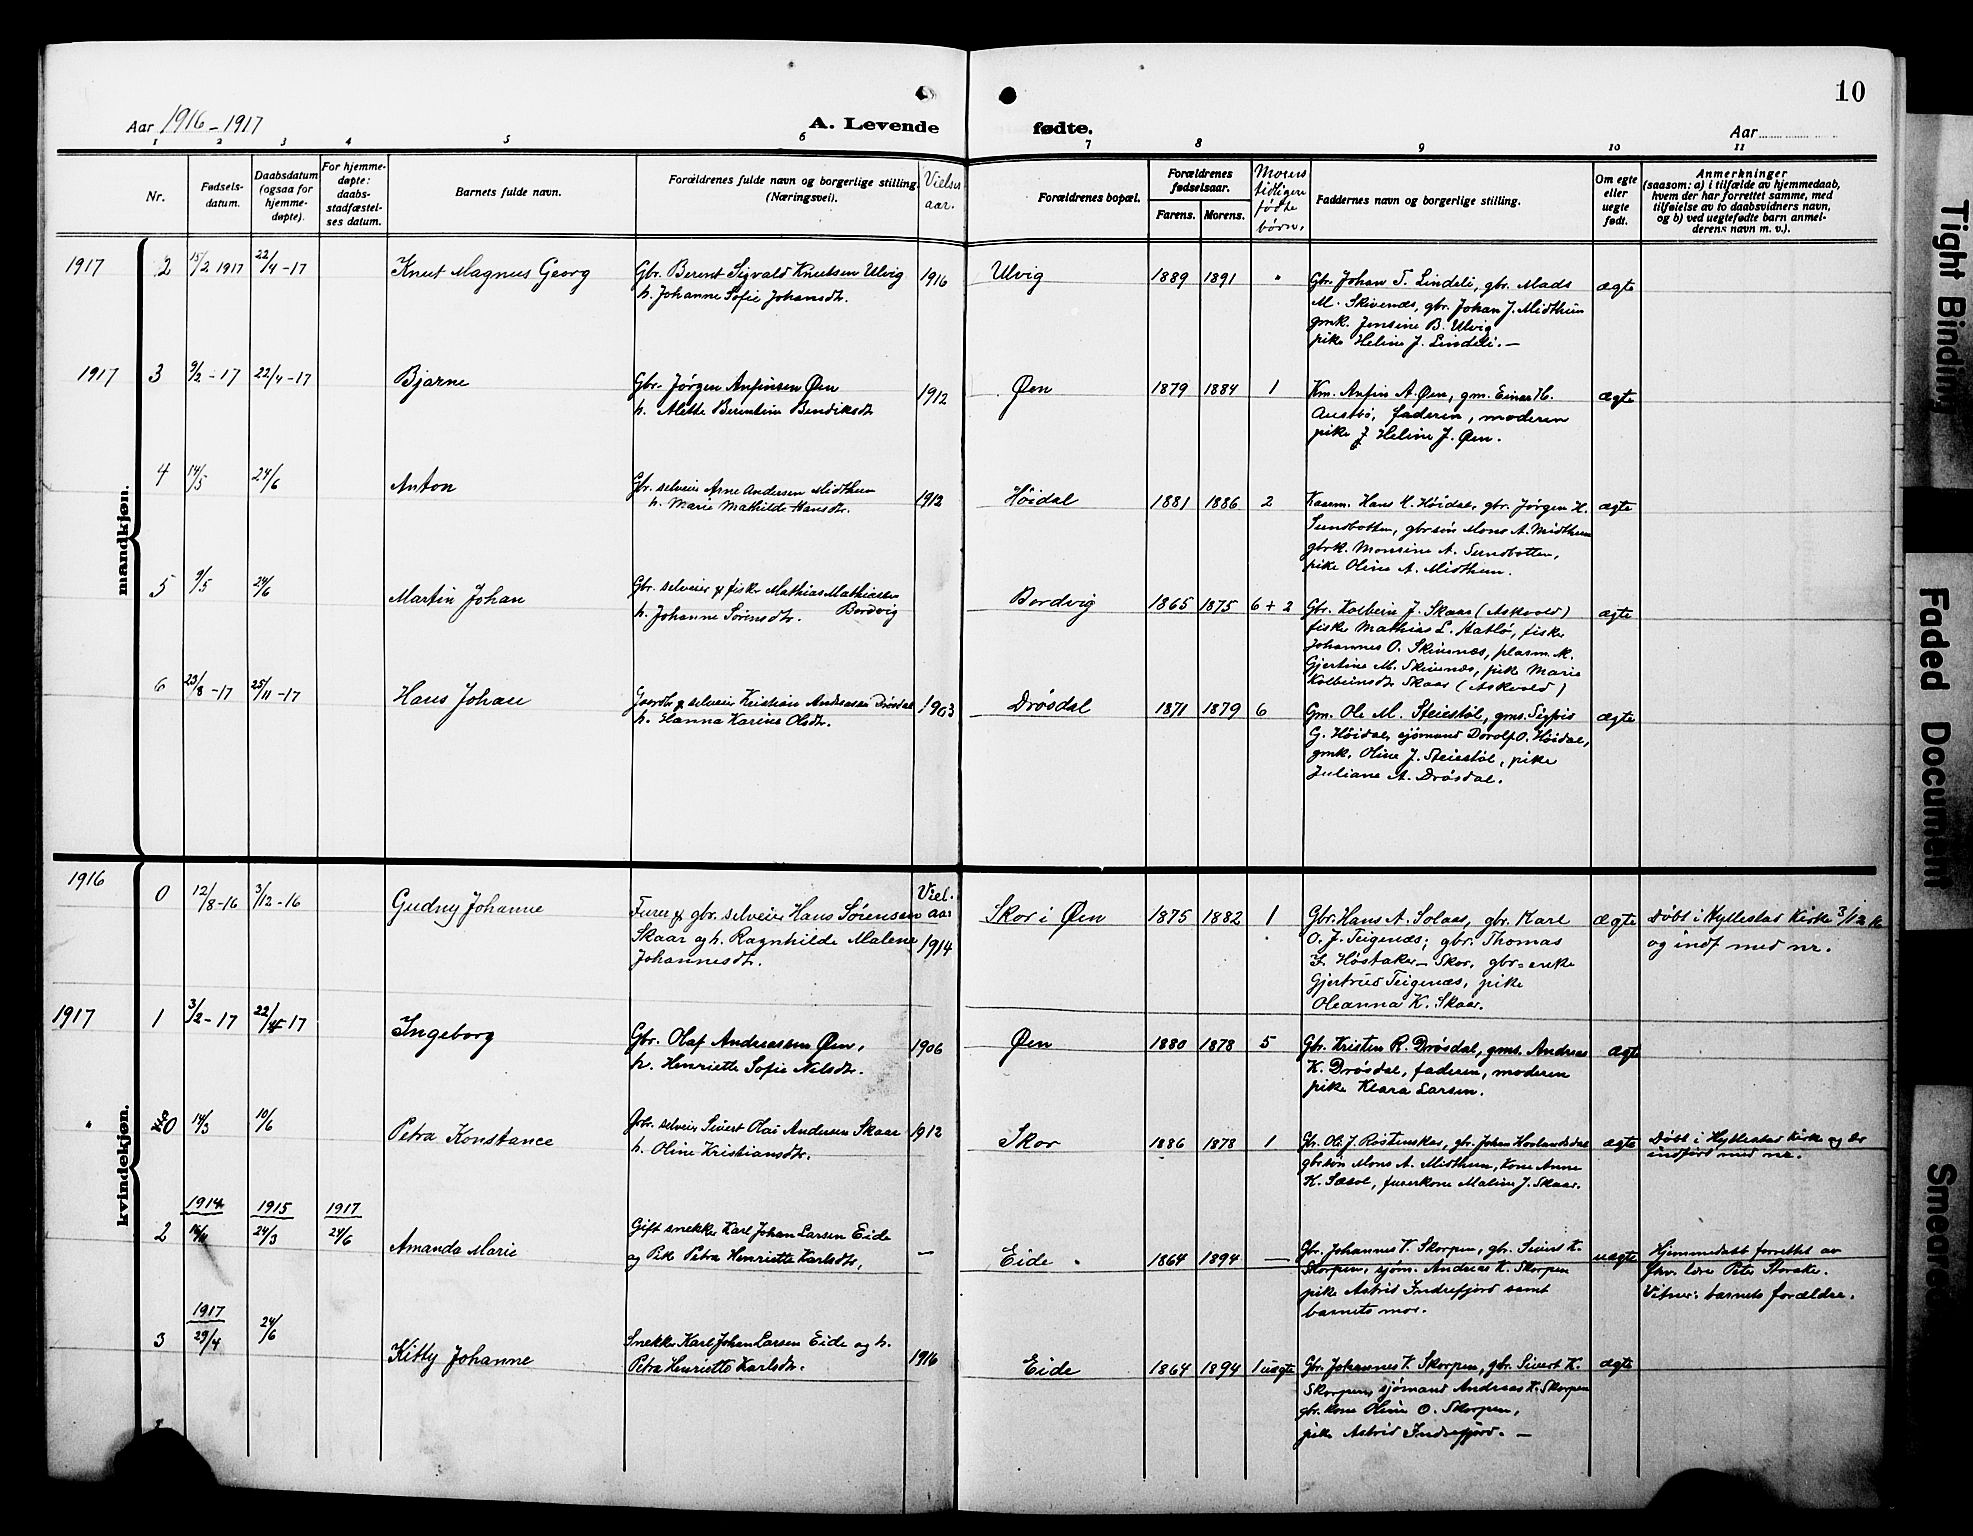 10
Aar 1916-1917
A. Levende
fødte.
Aar
1 2 3 4 5 6 7 8 9 10 11
Nr.
Fødsels-
datum.
Daabsdatum
(ogsaa for
hjemme-
døpte).
For hjemme-
døpte:
daabs-
stadfæstel-
ses datum.
Barnets fulde navn.
Forældrenes fulde navn og borgerlige stilling.
(Næringsvei).
Vielses
aar.
Forældrenes bopæl.
Forældrenes
fødselsaar.
Farens. Morens.
Morens
tidligere
fødte
børn.
Faddernes navn og borgerlige stilling.
Om egte
eller
uegte
født.
Anmerkninger
(saasom: a) i tilfælde av hjemmedaab,
hvem der har forrettet samme, med
tilføielse av to daabsvidners navn,
og b) ved uegtefødte barn anmel-
derens navn m. v.).
mandkjøn.
1917 2 15/2 1917 22/4-17 Knut Magnus Georg
Gbr. Berent Sigvald Knutsen Ulvig
h. Johanne Sofie Johansdtr.
1916 Ulvig 1889 1891 "
Gbr. Johan T. Lindeli, gbr. Mads
M. Skivenæs, gbr. Johan J. Midthun
gmk. Jensine B. Ulvig
pike Heline J. Lindeli. —
ægte
1917 3 9/2-17 22/4-17 Bjarne
Gbr. Jørgen Anfinsen Øen
h. Alette Berentine Bendiksdtr
1912 Øen 1879 1884 1
Km. Anfin A. Øen, gm. Einar H.
Austbø, faderen, moderen
pike J Heline J. Øen.
ægte
4 14/5 24/6 Anton
Gbr. selveier Arne Andersen Midthun
h. Marie Mathilde Hansdtr.
1912 Høidal 1881 1886 2
Kaarm. Hans K. Høidal, gbr. Jørgen H.
Sundbotten, gbrsøn Mons A. Midthun
gbrk. Monsine A. Sundbotten,
pike Oline A. Midthun.
ægte
5 9/5 24/6 Martin Johan
Gbr. selveier & fisker Mathias Mathiassen
h. Johanne Sørensdtr. Bordvig
Bordvig 1865 1875 6 + 2
Gbr. Kolbein J. Skaar (Askvold)
fisker Mathias L. Hatlø, fisker
Johannes O. Skivenæs, plasm. k.
Gjertine M. Skivenæs, pike Marie
Kolbeinsdtr Skaar (Askvold)
ægte
6 23/8-17 25/11-17 Hans Johan
Gaardbr & selveier Kristian Andreassen Drøsdal
h. Hanna Karine Olsdtr.
1903 Drøsdal 1871 1879 6
Gm. Ole M. Steiestøl, gms. Sigfris
G. Høidal, sjømand Dorolf O. Høidal,
gmk. Oline J. Steiestøl, pike
Juliane A. Drøsdal.
ægte
kvindekjøn.
1916 0 12/8-16 3/12-16 Gudny Johanne
Furer & gbr. selveier Hans Sørensen
Skaar og h. Ragnhilde Malene
Johannesdtr.
Viel.
aar
1914 Skor i Øen 1875 1882 1
Gbr. Hans A. Solaas, gbr. Karl
O. J. Teigenæs; gbr. Thomas
I. Høstaker - Skor, gbr-enke
Gjertrud Teigenæs, pike
Oleanna K. Skaar.
ægte
Døbt i Hyllestad Kirke 3/12 16
og indf med nr.
1917 1 3/2-17 22/4-17 Ingeborg
Gbr. Olaf Andreassen Øen,
h. Henriette Sofie Nilsdtr.
1906 Øen 1880 1878 5
Gbr. Kristen R. Drøsdal, gms. Andreas
K. Drøsdal, faderen, moderen
pike Klara Larsen.
ægte
" 0 14/3 10/6 Petra Konstance
Gbr. selveier Sivert Olai Andersen Skaar
h. Oline Kristiansdtr.
1912 Skor 1886 1878 1
Gbr. Ole J. Rostenskar, gbr. Johan Hovlandsdal
gbrsøn Mons A. Midthun, kone Anne
K. Sæsol, furerkone Malene J. Skaar.
ægte
Døbt i Hyllestad Kirke og er
indført med nr.
1914 1915 1917
2 24/3 24/6 Amanda Marie
Gift snekker Karl Johan Larsen Eide
og Pike Petra Henriette Karlsdtr,
— Eide 1864 1894 —
Gbr. Johannes K. Skorpen, gbr. Sivert K.
Skorpen, sjøm. Andreas K. Skorpen
pike Astrid Indrefjord samt
barnets mor.
uægte
Hjemmedøbt forrettet av
fhv. lærer Peter Storaker.
Vitner: barnets forældre.
1917
3 29/4 24/6 Kitty Johanne
Snekker Karl Johan Larsen Eide og h.
Petra Henriette Karlsdtr.
1916 Eide 1864 1894 1 uægte
Gbr. Johannes K. Skorpen, gbr. Sivert K.
Skorpen, sjømand Andreas K. Skorpen
gbr. kone Oline O. Skorpen,
pike Astrid Indrefjord. —
ægte
Tight Binding
Faded Document
Smeared